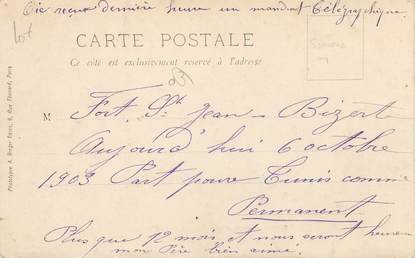 Oie reçu dernière heure un mandat Télégraphique.
Lot
CARTE POSTALE
Ce côté est exclusivement réservé à l'adresse
M
Fort St Jean - Bizerte
Aujourd'hui 6 octobre
1903 Part pour Tunis comme
Permanent
Plus que 12 mois et nous seront heureux
mon Père bien aimé.
Phototypie A. Breger frères, 9, Rue Thénard, Paris